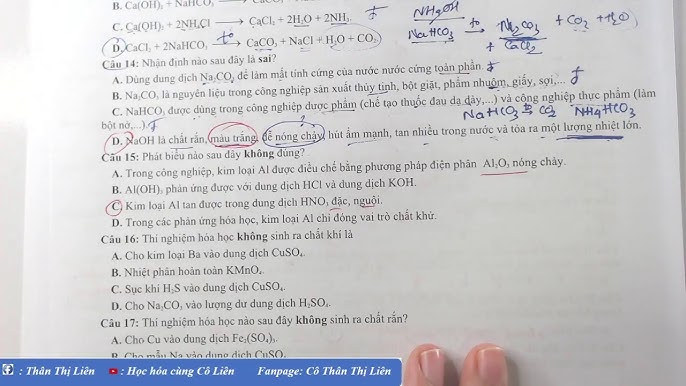 B. Ca(OH)₂ + NaHCO₃
C. Ca(OH)₂ + 2NH₄Cl → CaCl₂ + 2H₂O + 2NH₃.
NH₄OH
D. CaCl₂ + 2NaHCO₃ t° → CaCO₃ + NaCl + H₂O + CO₂
NaHCO₃ t° → Na₂CO₃ + CO₂ + H₂O
+ CaCl₂
Câu 14: Nhận định nào sau đây là sai?
A. Dùng dung dịch Na₂CO₃ để làm mất tính cứng của nước nước cứng toàn phần.
B. Na₂CO₃ là nguyên liệu trong công nghiệp sản xuất thủy tinh, bột giặt, phẩm nhuộm, giấy, sợi,...
C. NaHCO₃ được dùng trong công nghiệp dược phẩm (chế tạo thuốc đau dạ dày,...) và công nghiệp thực phẩm (làm
bột nở,...).
NaHCO₃ t° → CO₂ NH₄HCO₃
D. NaOH là chất rắn, màu trắng, dễ nóng chảy, hút ẩm mạnh, tan nhiều trong nước và tỏa ra một lượng nhiệt lớn.
Câu 15: Phát biểu nào sau đây không đúng?
A. Trong công nghiệp, kim loại Al được điều chế bằng phương pháp điện phân Al₂O₃ nóng chảy.
B. Al(OH)₃ phản ứng được với dung dịch HCl và dung dịch KOH.
C. Kim loại Al tan được trong dung dịch HNO₃ đặc, nguội.
D. Trong các phản ứng hóa học, kim loại Al chỉ đóng vai trò chất khử.
Câu 16: Thí nghiệm hóa học không sinh ra chất khí là
A. Cho kim loại Ba vào dung dịch CuSO₄.
B. Nhiệt phân hoàn toàn KMnO₄.
C. Sục khí H₂S vào dung dịch CuSO₄.
D. Cho Na₂CO₃ vào lượng dư dung dịch H₂SO₄.
Câu 17: Thí nghiệm hóa học nào sau đây không sinh ra chất rắn?
A. Cho Cu vào dung dịch Fe₂(SO₄)₃.
B. Cho mẫu Na vào dung dịch CuSO₄.
: Thân Thị Liên : Học hóa cùng Cô Liên Fanpage: Cô Thân Thị Liên